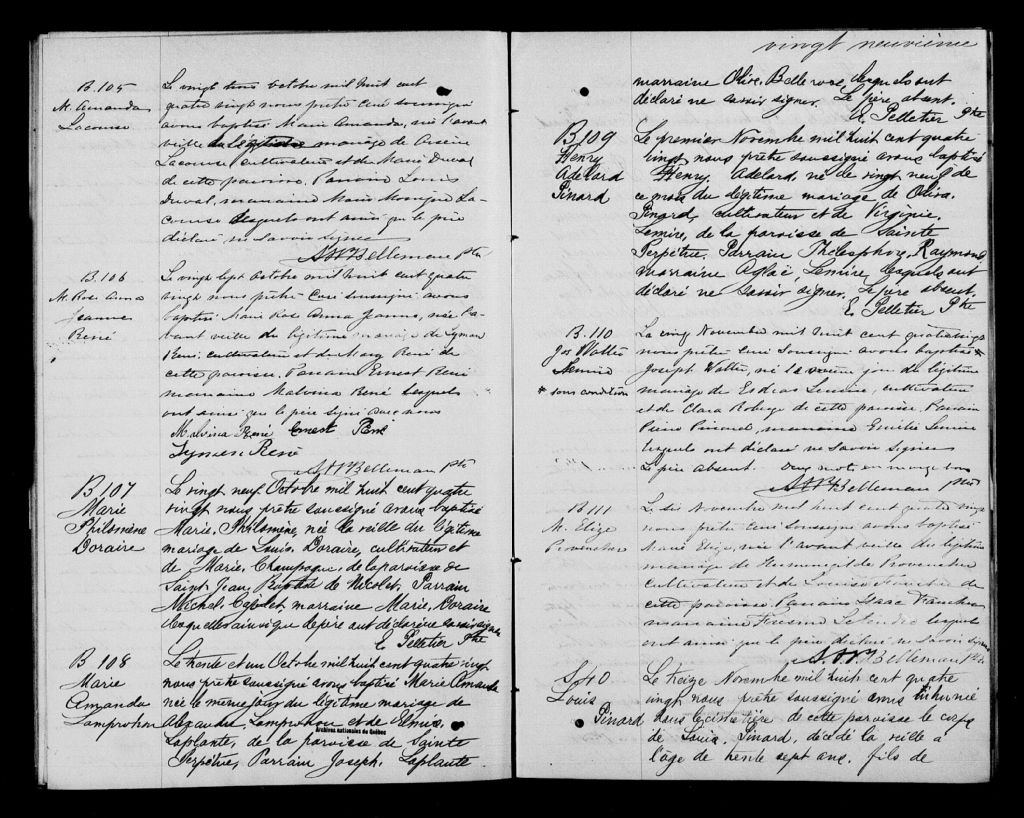 B.105
M. Amanda
Lacourse
Le vingt trois octobre mil huit cent
quatre vingt nous prêtre curé soussigné
avons baptisé Marie Amanda, née l'avant
veille du légitime mariage de Arsène
Lacourse cultivateur et de Marie Duval
de cette paroisse. Parrain Louis
Duval, marraine Marie Monique La-
course lesquels ont ainsi que le père
déclaré ne savoir signer
B.106
M. Rose Anna
Jeanne
René
Le vingt sept Octobre mil huit cent quatre
vingt nous prêtre Curé soussigné avons
baptisé Marie Rose Anna Jeanne, née l'a-
vant veille du légitime mariage de Lyman
René cultivateur et de Mary René de
cette paroisse. Parrain Ernest René
marraine Malvina René lesquels
ont ainsi que le père signé avec nous
Malvina René Ernest René
Lyman René
Bellemare Ptre
B 107
Marie
Philomène
Doraire
Le vingt neuf Octobre mil huit cent quatre
vingt nous prêtre soussigné avons baptisé
Marie, Philomène, née la veille du légitime
mariage de Louis, Doraire, cultivateur et
de Marie, Champagne, de la paroisse de
Saint Jean, Baptiste de Nicolet, Parrain
Michel, marraine Marie, Doraire
lesquelles ainsi que le père ont déclaré ne savoir signer
E Pelletier Ptre
B 108
Marie
Amanda
Lamprohon
Le trente et un Octobre mil huit cent quatre vingt
nous prêtre soussigné avons baptisé Marie Amanda
née le même jour du légitime mariage de
Alexandre, Lamprohon et de
Laplante, de la paroisse de Sainte
Perpétue, Parrain Joseph, Laplante
Archives nationales du Québec
vingt neuvième
marraine Olive, Bellerose lesquels ont
déclaré ne savoir signer. Le père absent.
E Pelletier Ptre
B 109
Henry
Adelard
Pinard
Le premier Novembre mil huit cent quatre
vingt nous prêtre soussigné avons baptisé
Henry, Adelard, né le vingt neuf de
ce mois du légitime mariage de Oliva,
Pinard, cultivateur et de Virginie,
Lemire, de la paroisse de Sainte
Perpétue, Parrain Thélesphore, Raymond
marraine Aglaé Lemire, lesquels ont
déclaré ne savoir signer. Le père absent,
E Pelletier Ptre
B.110
Jos Walter
Lemire
* sous condition
Le cinq Novembre mil huit cent quatre vingt
nous prêtre curé soussigné avons baptisé *
Joseph Walter, né le même jour du légitime
mariage de Esdras Lemire, cultivateur
et de Clara Roberge de cette paroisse. Parrain
Pierre Pinard, marraine Emilie Lemire
lesquels ont déclaré ne savoir signer
Le père absent. Deux mots en marge bons
Bellemare Ptre
B.111
M. Eliza
Provencher
Le six Novembre mil huit cent quatre vingt
nous prêtre curé soussigné avons baptisé
Marie Eliza, née l'avant veille du légitime
mariage de Hermenegilde Provencher
cultivateur et de Louise de
cette paroisse. Parrain Isaac
marraine lesquels
ont ainsi que le père déclaré ne savoir signer
Bellemare Ptre
S 40
Louis
Pinard
Le treize Novembre mil huit cent quatre
vingt nous prêtre soussigné avons inhumé
dans le cimetière de cette paroisse le corps
de Louis, Pinard, décédé la veille à
l'âge de trente sept ans. fils de